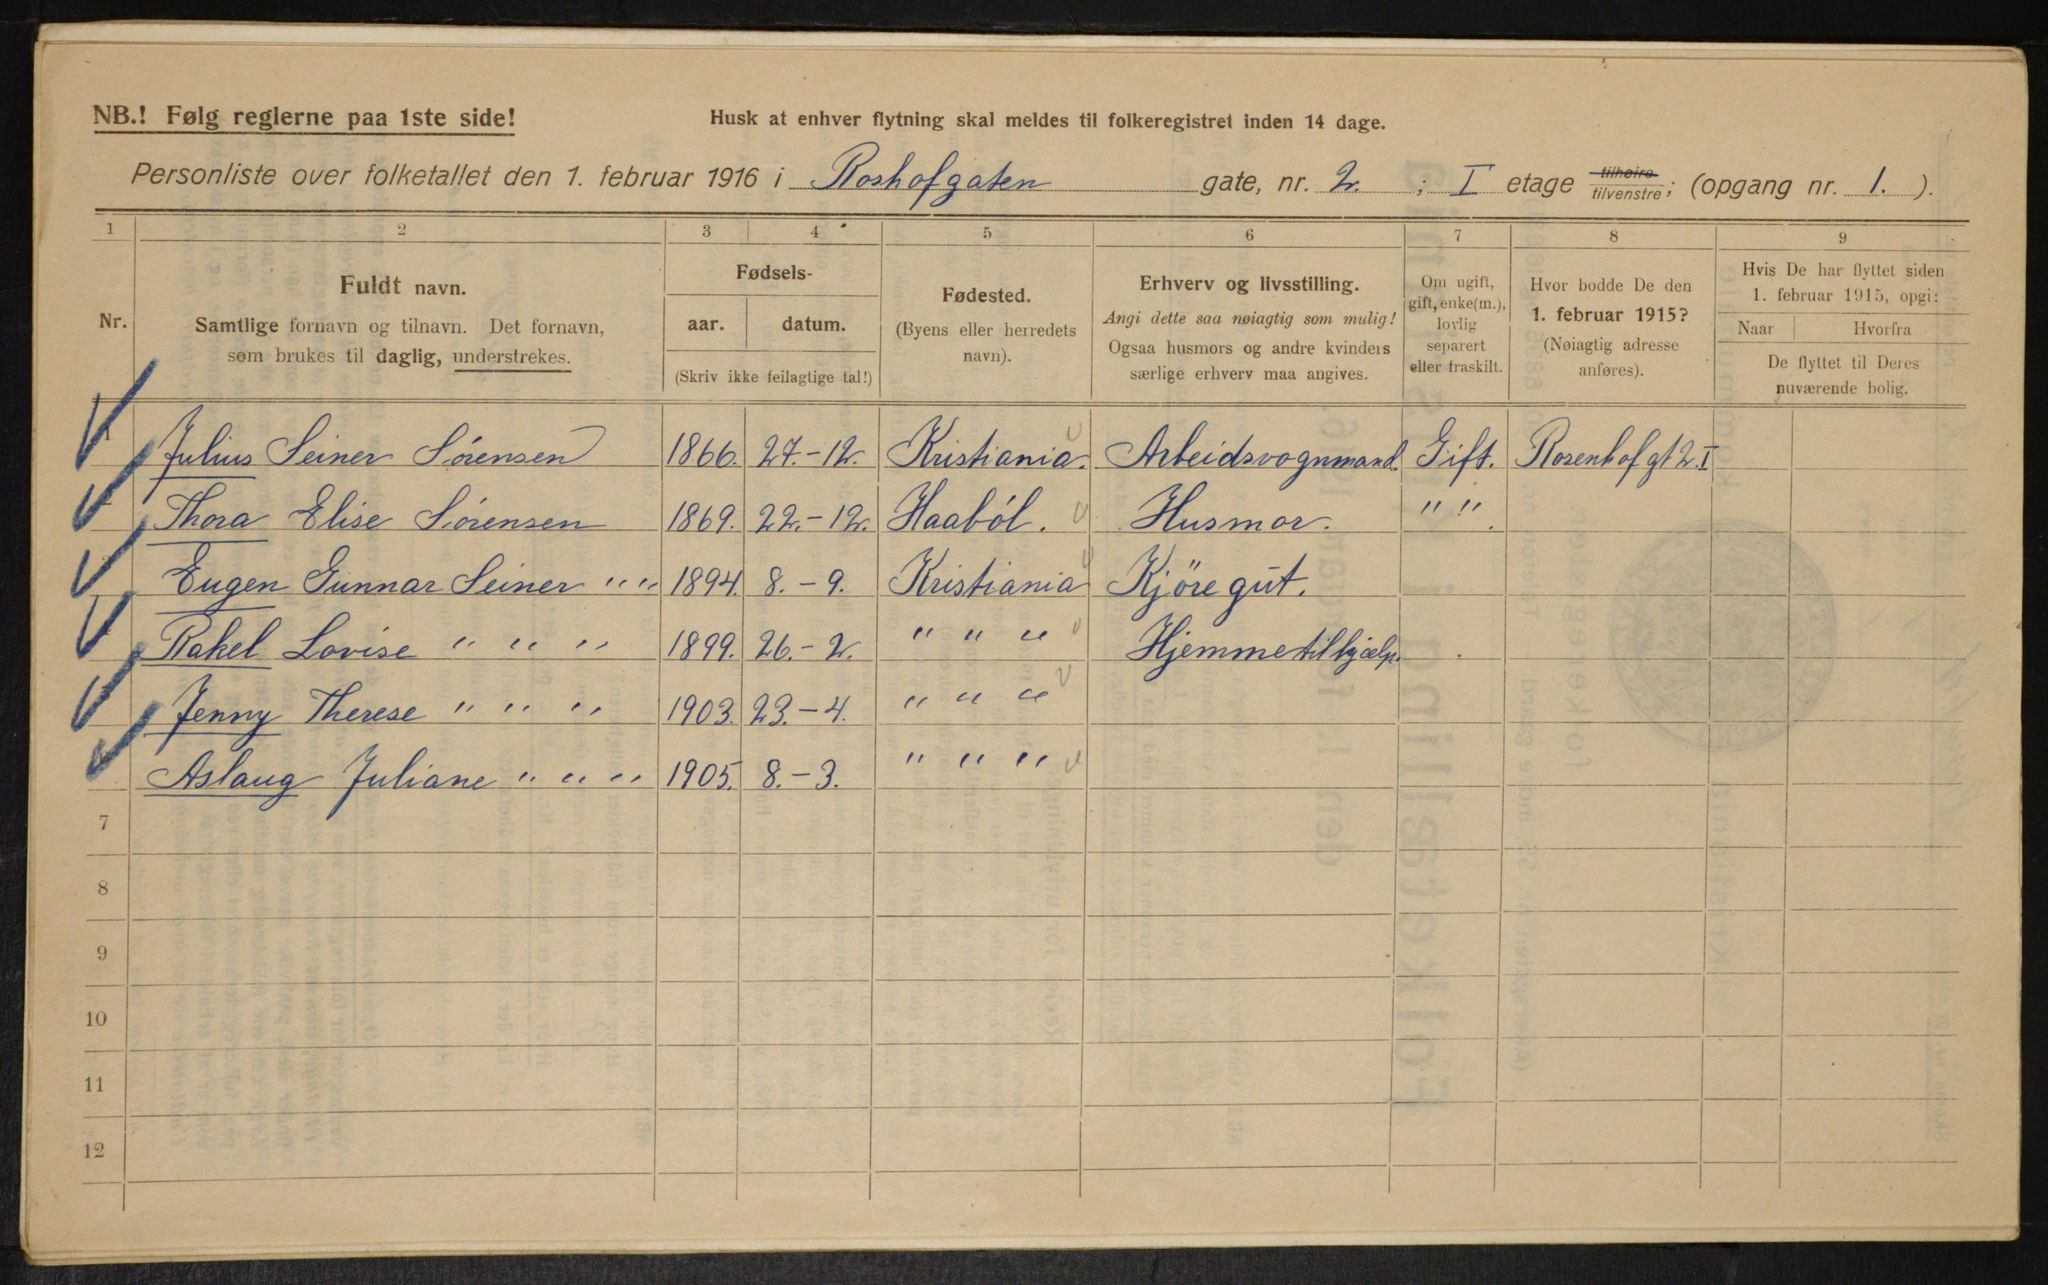 NB.! Følg reglerne paa 1ste side!
Husk at enhver flytning skal meldes til folkeregistret inden 14 dage.
Personliste over folketallet den 1. februar 1916 i Roshofgaten gate, nr. 2. ; I etage tilhøire tilvenstre; (opgang nr. 1. ).
1 2 3 4 5 6 7 8 9
Nr.
Fuldt navn.
Samtlige fornavn og tilnavn. Det fornavn,
som brukes til daglig, understrekes.
Fødsels-
aar. datum.
(Skriv ikke feilagtige tal!)
Fødested.
(Byens eller herredets
navn).
Erhverv og livsstilling.
Angi dette saa nøiagtig som mulig!
Ogsaa husmors og andre kvinders
særlige erhverv maa angives.
Om ugift,
gift, enke(m.),
lovlig
separert
eller fraskilt.
Hvor bodde De den
1. februar 1915?
(Nøiagtig adresse
anføres).
Hvis De har flyttet siden
1. februar 1915, opgi:
Naar Hvorfra
De flyttet til Deres
nuværende bolig.
1 Julius Seiner Sörensen 1866. 27.-12. Kristiania. Arbeidsvognmand. Gift. Rosenhofgt 2. I
Thora Elise Sörensen 1869. 22.-12. Haaböl. Husmor. " ".
Eugen Gunnar Seiner " " 1894. 8.-9. Kristiania Kjöregut.
Rakel Lovise " " " 1899. 26.-2. " " " Hjemmetilhjælp.
Jenny Therese " " " 1903. 23.-4. " " "
Aslaug Juliane " " " 1905. 8.-3. " " "
7
8
9
10
11
12